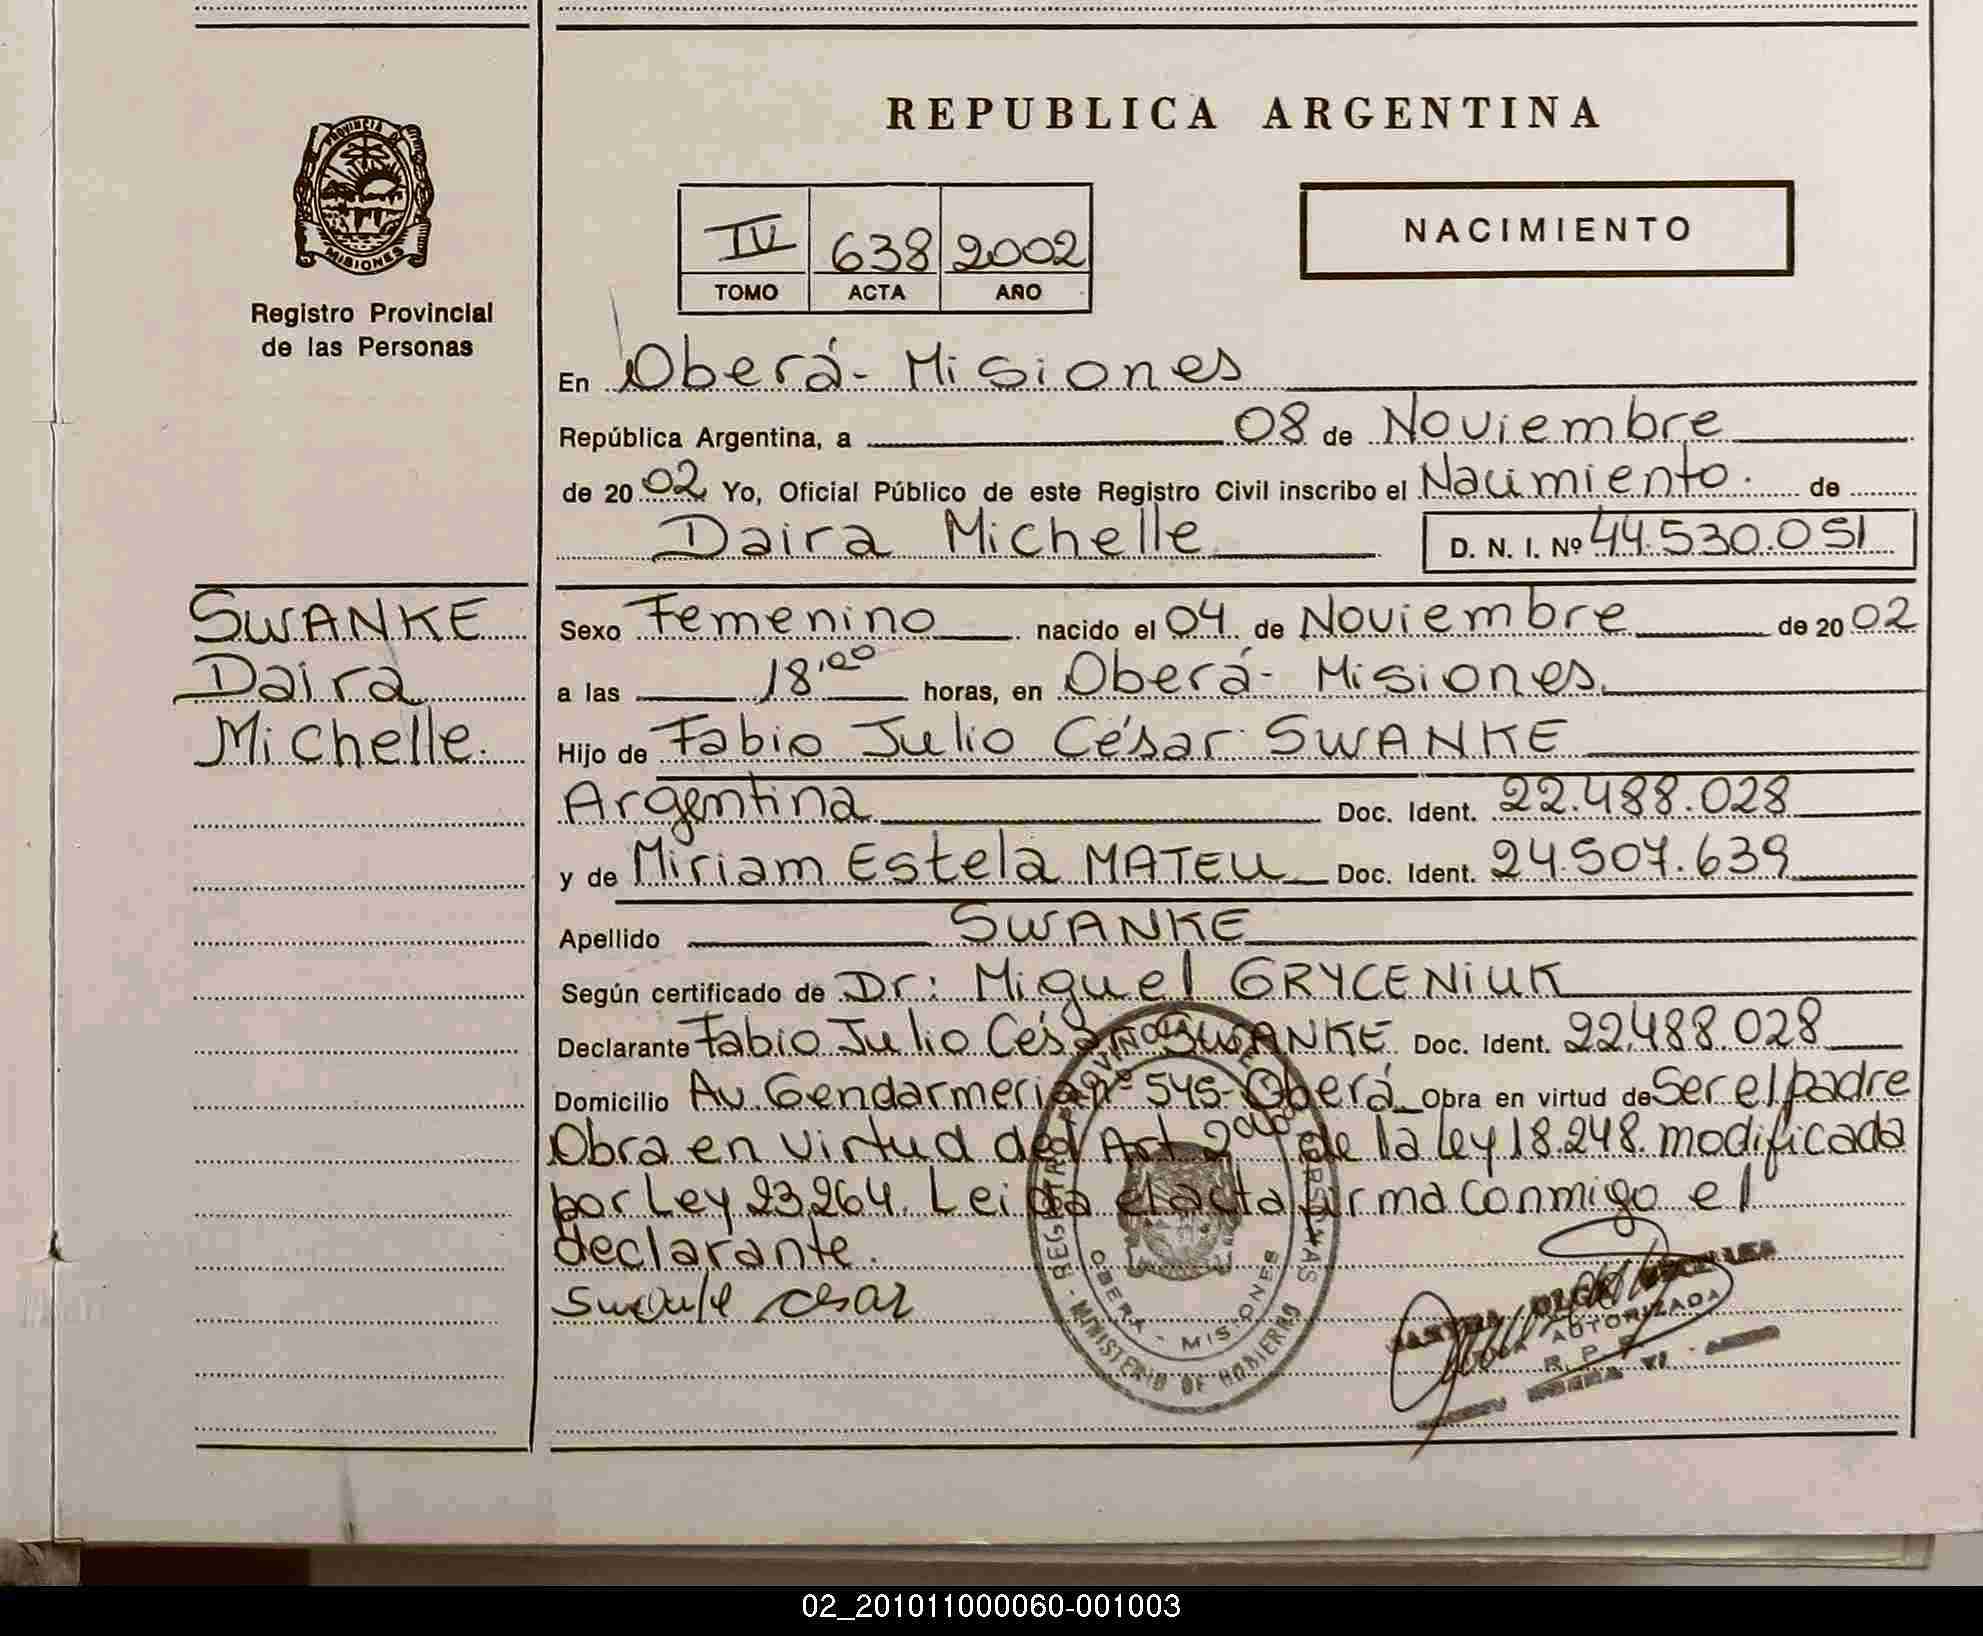 REPUBLICA ARGENTINA
PROVINCIA DE
MISIONES
Registro Provincial
de las Personas
IV 638 2002
TOMO ACTA AÑO
NACIMIENTO
En Oberá - Misiones
República Argentina, a 08 de Noviembre
de 2002 Yo, Oficial Público de este Registro Civil inscribo el Nacimiento. de
Daira Michelle D. N. I. Nº 44.530.051
SWANKE
Daira
Michelle.
Sexo Femenino nacido el 04 de Noviembre de 2002
a las 18,00 horas, en Oberá - Misiones.
Hijo de Fabio Julio César SWANKE
Argentina Doc. Ident. 22.488.028
y de Miriam Estela MATEU Doc. Ident. 24.507.639
Apellido SWANKE
Según certificado de Dr: Miguel GRYCENIUK
Declarante Fabio Julio César SWANKE Doc. Ident. 22.488.028
Domicilio Av. Gendarmeria nº 545- Oberá Obra en virtud de Ser el padre
Obra en virtud del Art 2do de la ley 18.248. modificada
por Ley 23.264. Leida el acta firma conmigo el
declarante.
Swanke cesar
OBERA - MISIONES
MINISTERIO DE GOBIERNO
AUTORIZADA
R. P.
02_201011000060-001003